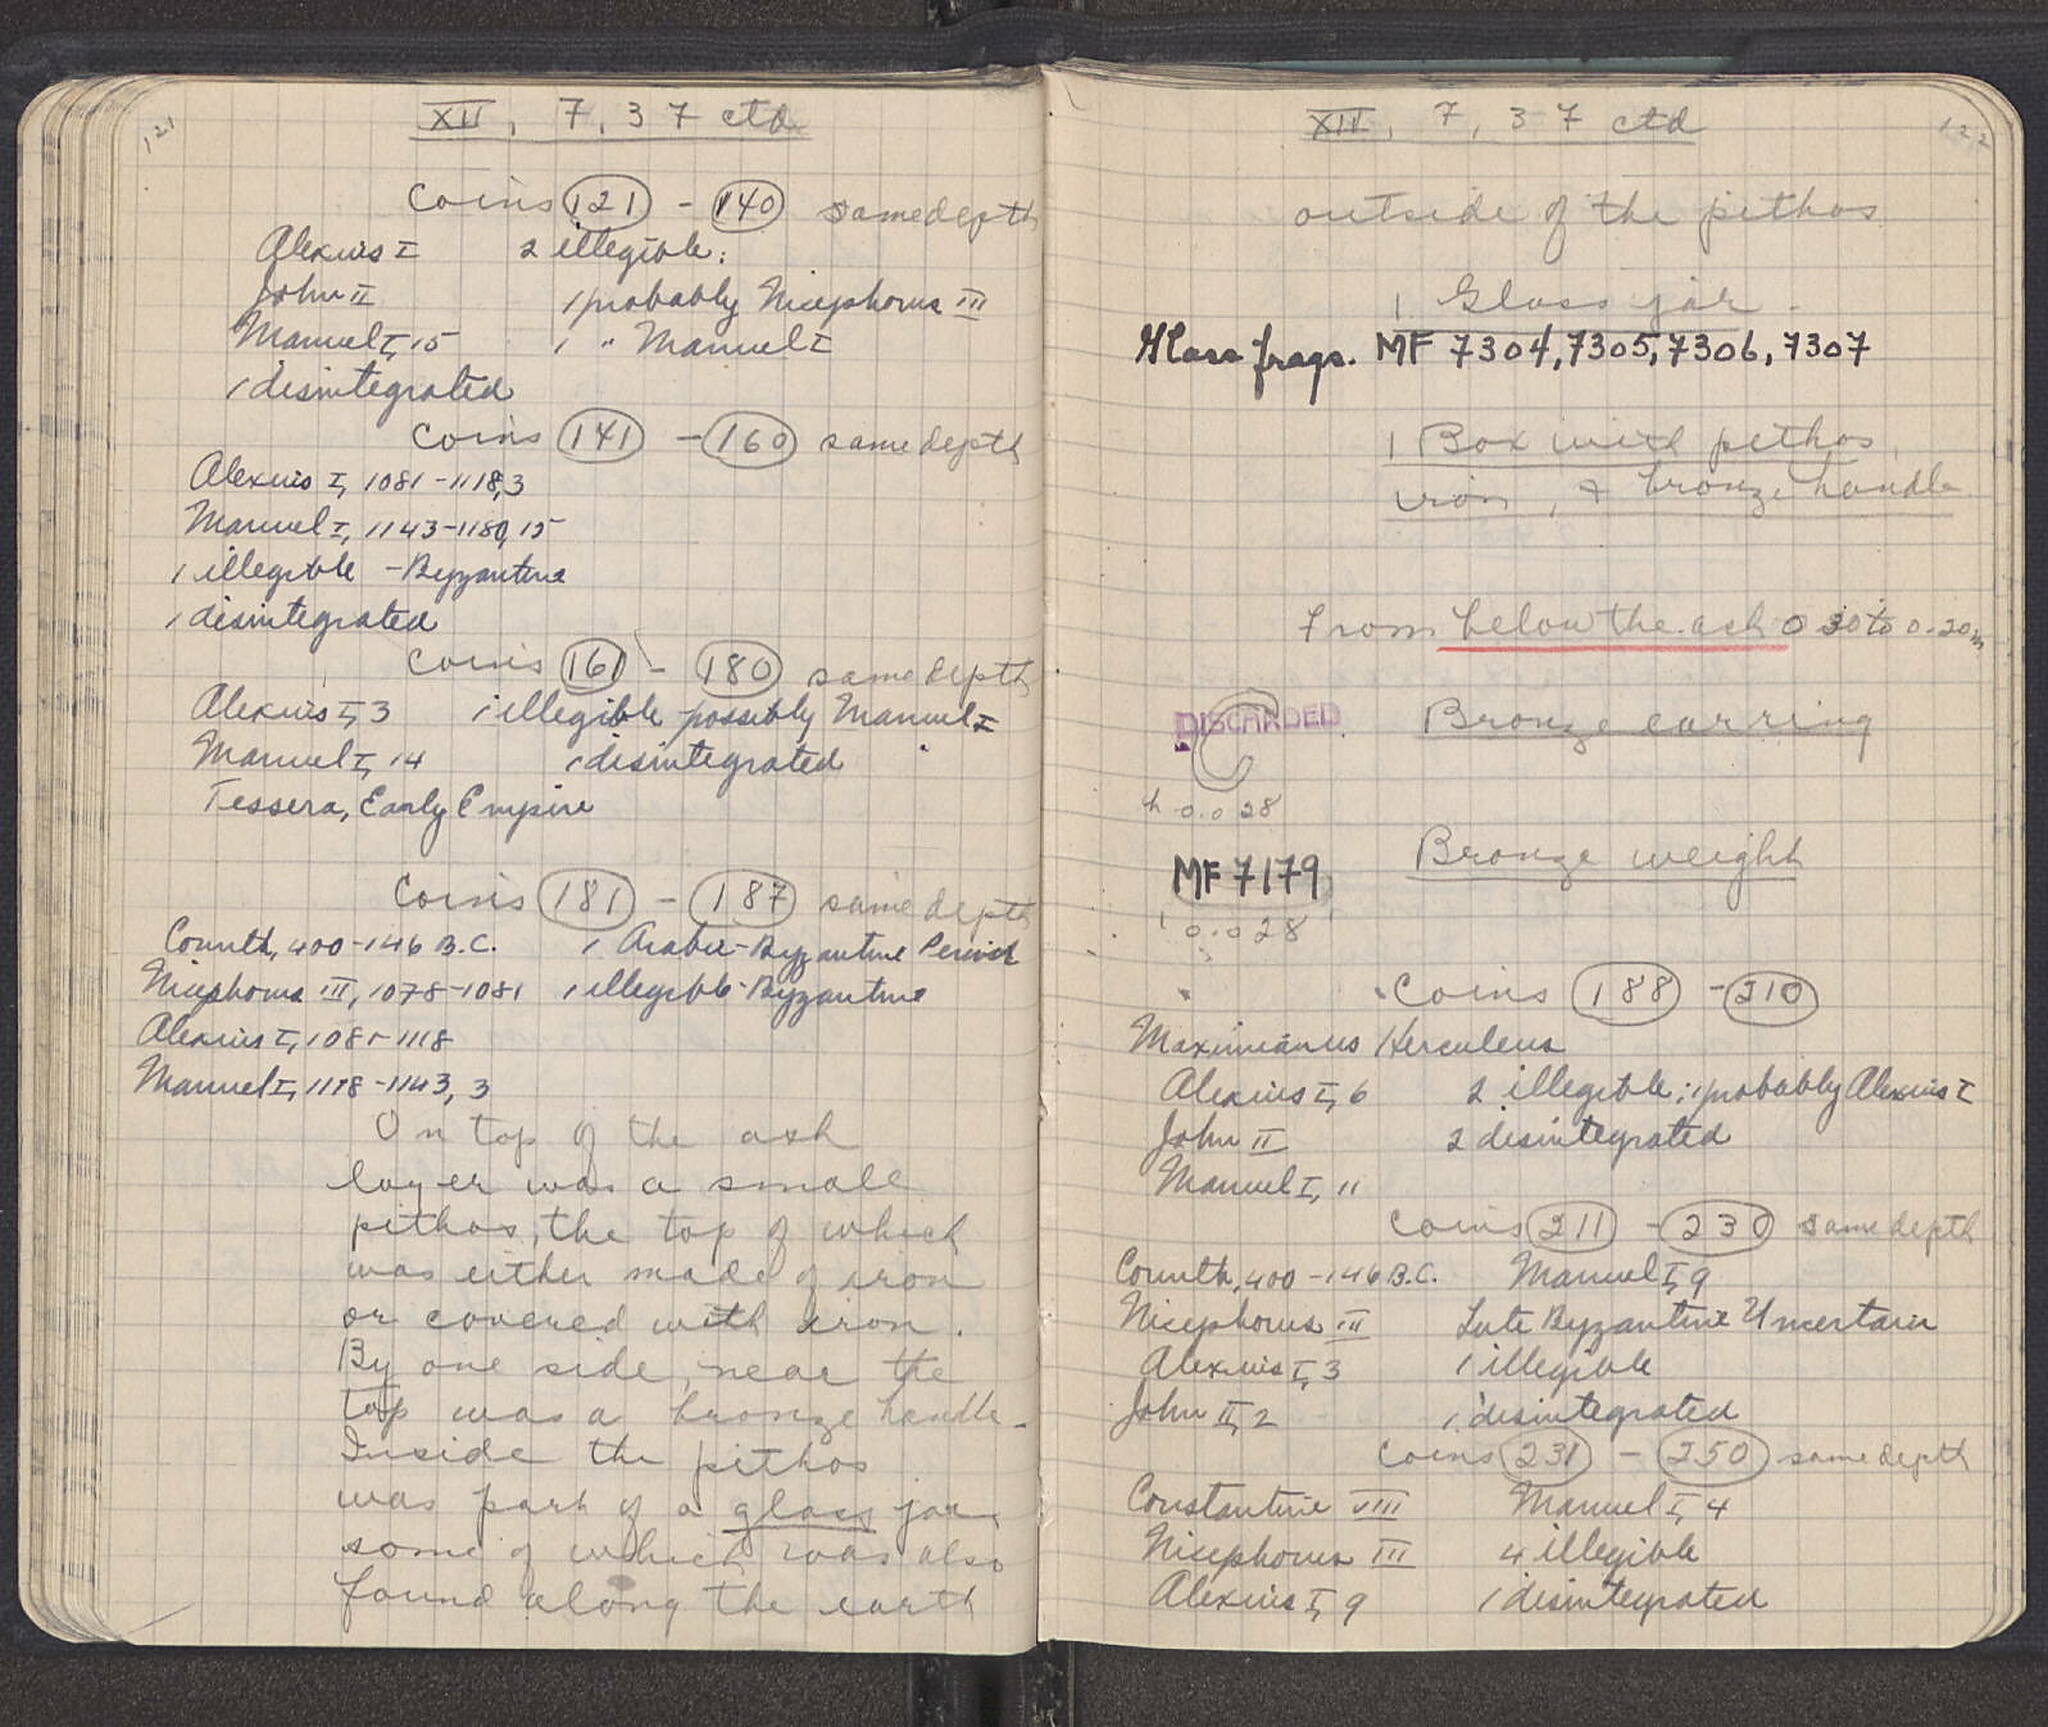 121
XII, 7, 37 ctd
Coins 121 - 140 same depth
Alexius I 2 illegible:
John II 1 probably Nicephorus III
Manuel I, 15 1 " Manuel I
1 disintegrated
Coins 141 - 160 same depth
Alexius I, 1081-1118, 3
Manuel I, 1143-1180, 15
1 illegible - Byzantine
1 disintegrated
Coins 161 - 180 same depth
Alexius I, 3 1 illegible possibly Manuel I
Manuel I, 14 1 disintegrated
Tessera, Early Empire
Coins 181 - 187 same depth
Corinth, 400-146 B.C. 1 Arabic-Byzantine Period
Nicephorus III, 1078-1081 1 illegible-Byzantine
Alexius I, 1081-1118
Manuel I, 1118-1143, 3
On top of the ash
layer was a small
pithos, the top of which
was either made of iron
or covered with iron.
By one side, near the
top was a bronze handle.
Inside the pithos
was part of a glass jar
some of which was also
found along the earth
122
XII, 7, 37 ctd
outside of the pithos
1 Glass jar
Glass frags. MF 7304, 7305, 7306, 7307
1 Box with pithos
iron, & bronze handle
From below the ash 0 30 to 0.20m
DISCARDED Bronze earring
h 0.028
MF 7179 Bronze weight
0.028
Coins 188 - 210
Maximianus Herculeus
Alexius I, 6 2 illegible; 1 probably Alexius I
John II 2 disintegrated
Manuel I, 11
Coins 211 - 230 same depth
Corinth, 400-146 B.C. Manuel I, 9
Nicephorus III Late Byzantine Uncertain
Alexius I, 3 1 illegible
John II, 2 1 disintegrated
Coins 231 - 250 same depth
Constantine VIII Manuel I, 4
Nicephorus III 4 illegible
Alexius I, 9 1 disintegrated